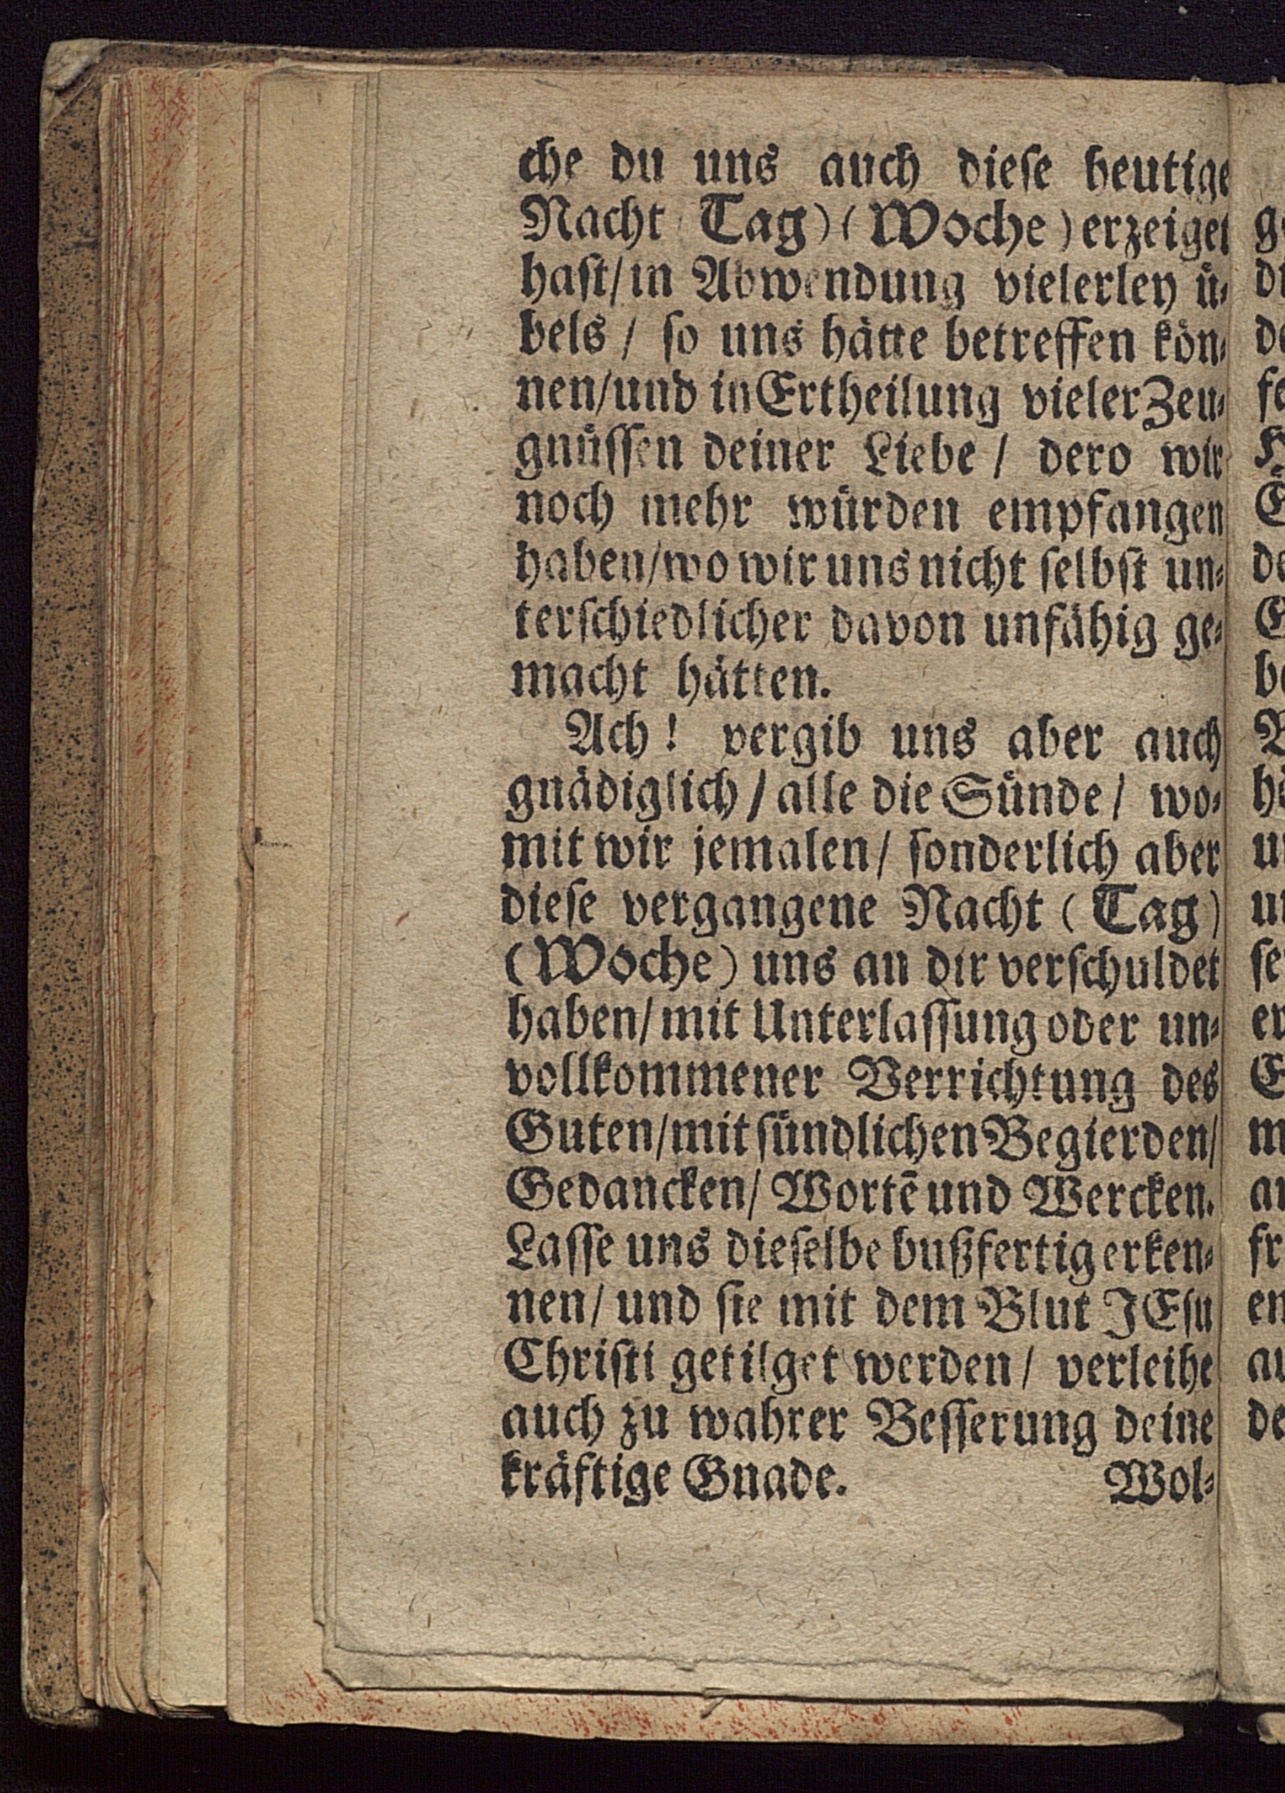 che du uns auch dieſe heutige
Nacht (Tag) (Woche) erzeiget
haſt/in Abwendung vielerley ü-
bels / ſo uns hätte betreffen kön-
nen/und in Ertheilung vieler Zeu-
gnüſſen deiner Liebe / dero wir
noch mehr würden empfangen
haben/wo wir uns nicht ſelbſt un-
terſchiedlicher davon unfähig ge-
macht hätten.
Ach! vergib uns aber auch
gnädiglich / alle die Sünde / wo-
mit wir jemalen / ſonderlich aber
dieſe vergangene Nacht (Tag)
(Woche) uns an dir verſchuldet
haben/mit Unterlaſſung oder un-
vollkommener Verrichtung des
Guten/mit ſündlichen Begierden/
Gedancken/ Wortē und Wercken.
Laſſe uns dieſelbe bußfertig erken-
nen/ und ſie mit dem Blut JEſu
Chriſti getilget werden/ verleihe
auch zu wahrer Beſſerung deine
kräftige Gnade. Wol-